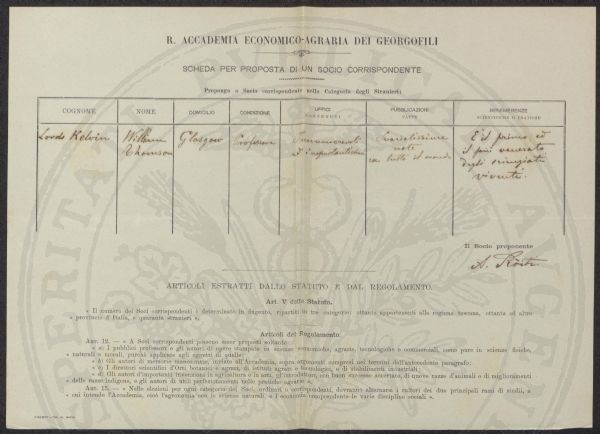 R. ACCADEMIA ECONOMICO-AGRARIA DEI GEORGOFILI
SCHEDA PER PROPOSTA DI UN SOCIO CORRISPONDENTE
Propongo a Socio corrispondente nella Categoria degli Stranieri:
COGNOME NOME DOMICILIO CONDIZIONE UFFICI PUBBLICAZIONI FATTE BENEMERENZE SCIENTIFICHE O PRATICHE
Lord Kelvin William Thomson Glasgow Professore Innumerevoli e importantissimi Svariatissime note in tutto il mondo È il primo ed il più venerato degli scienziati viventi.
Il Socio proponente
A.
ARTICOLI ESTRATTI DALLO STATUTO E DAL REGOLAMENTO.
Art. V dello Statuto.
« Il numero dei Soci corrispondenti è determinato in dugento, ripartiti in tre categorie: ottanta appartenenti alla regione toscana, ottanta ad altre
« provincie d'Italia, e quaranta stranieri ».
Articoli del Regolamento.
ART. 12. — « A Soci corrispondenti possono esser proposti soltanto:
« a) I pubblici professori o gli autori di opere stampate in scienze economiche, agrarie, tecnologiche o commerciali, come pure in scienze fisiche,
« naturali o morali, purché applicate agli oggetti di quelle;
« b) Gli autori di memorie manoscritte, inviate all'Accademia, sopra argomenti compresi nei termini dell'antecedente paragrafo;
« c) I direttori scientifici d'Orti botanici e agrari, di istituti agrari e tecnologici, e di stabilimenti industriali;
« d) Gli autori d'importanti invenzioni in agricoltura o in arti, gl'introduttori, con buon successo accertato, di nuove razze d'animali o di miglioramenti
« delle razze indigene, o gli autori di utili perfezionamenti nelle pratiche agrarie ».
ART. 15. — « Nelle elezioni per ogni categoria dei Soci, ordinari o corrispondenti, dovranno alternarsi i cultori dei due principali rami di studii, a
« cui intende l'Accademia, cioè l'agronomia con le scienze naturali, e l'economia comprendente le varie discipline sociali ».